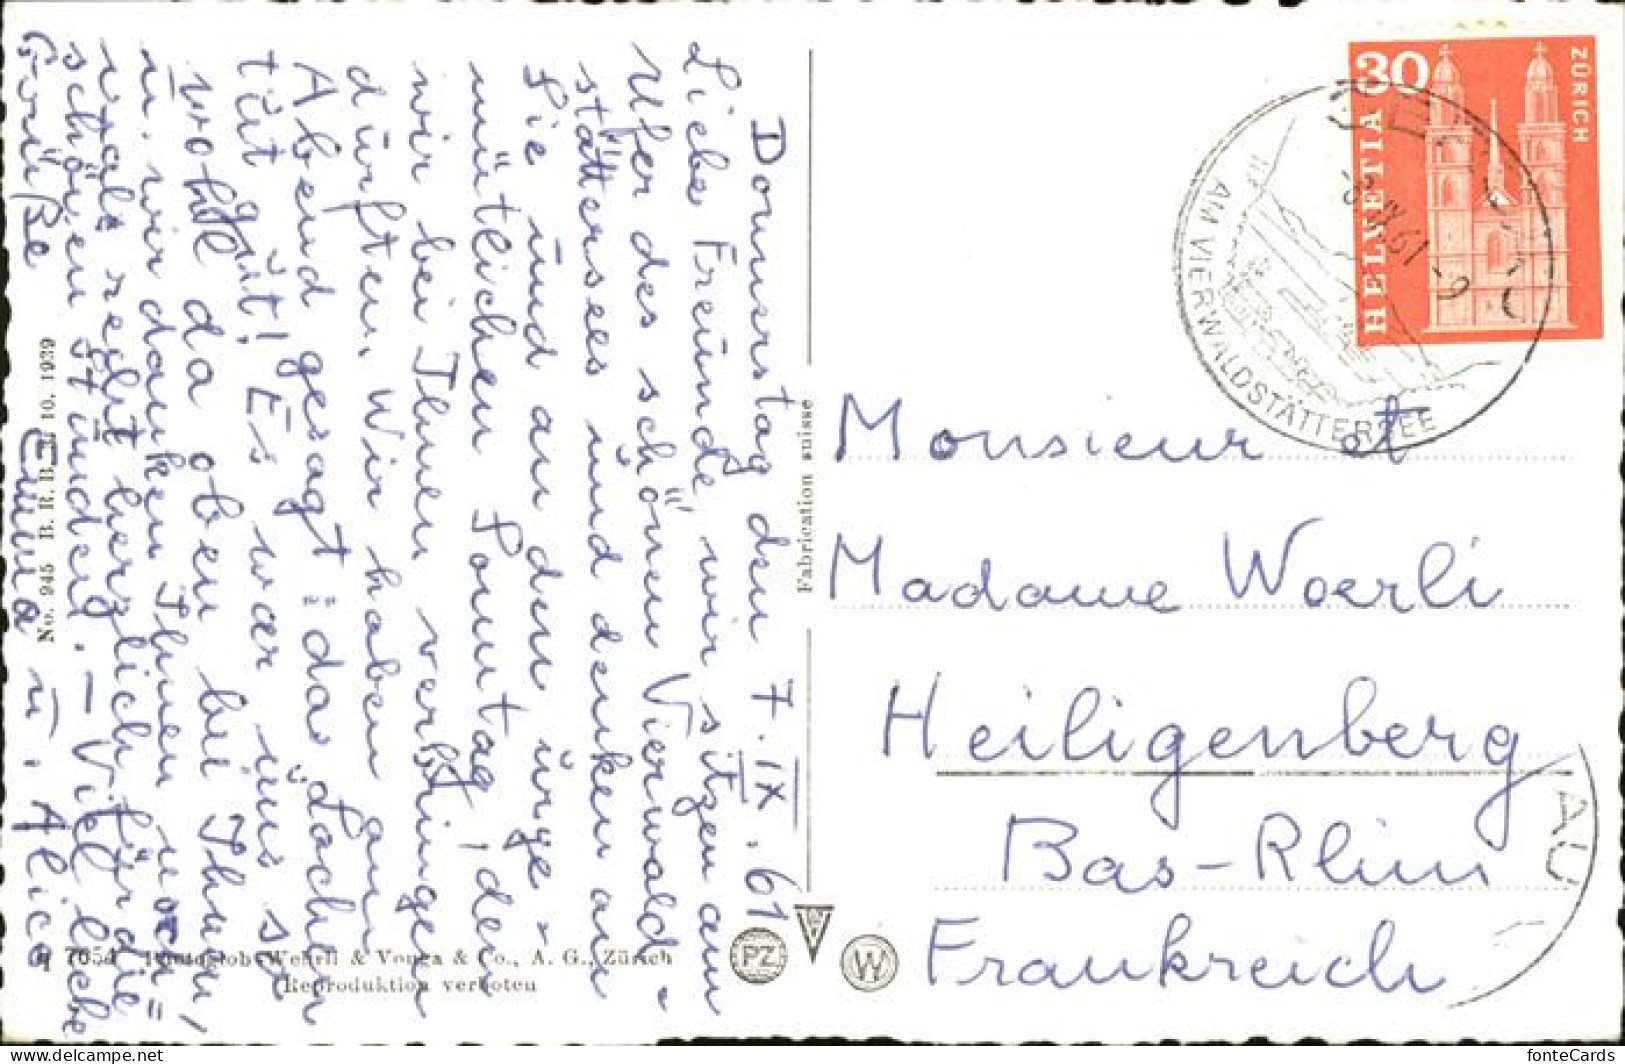 Donnerstag den 7. IX. 61
Liebe Freunde, wir sitzen am
Ufer des schönen Vierwald-
stättersees und denken an
Sie und an den urge-
mütlichen Sonntag, den
wir bei Ihnen verbringen
durften. Wir haben am
Abend gesagt: das Lachen
tut gut! Es war uns so
wohl da oben bei Ihnen,
u. wir danken Ihnen noch-
mals recht herzlich für die
schönen Stunden. – Viel liebe
Grüße Emma u. Alice
No. 945 B. R. B. 3. 10. 1939
7054 Photoglob-Wehrli & Vouga & Co., A. G., Zürich
Reproduktion verboten
Fabrication suisse
PZ
W
30
HELVETIA
ZÜRICH
AM VIERWALDSTÄTTERSEE
Monsieur et
Madame Woerli
Heiligenberg
Bas-Rhin
Frankreich
AU
fonteCards